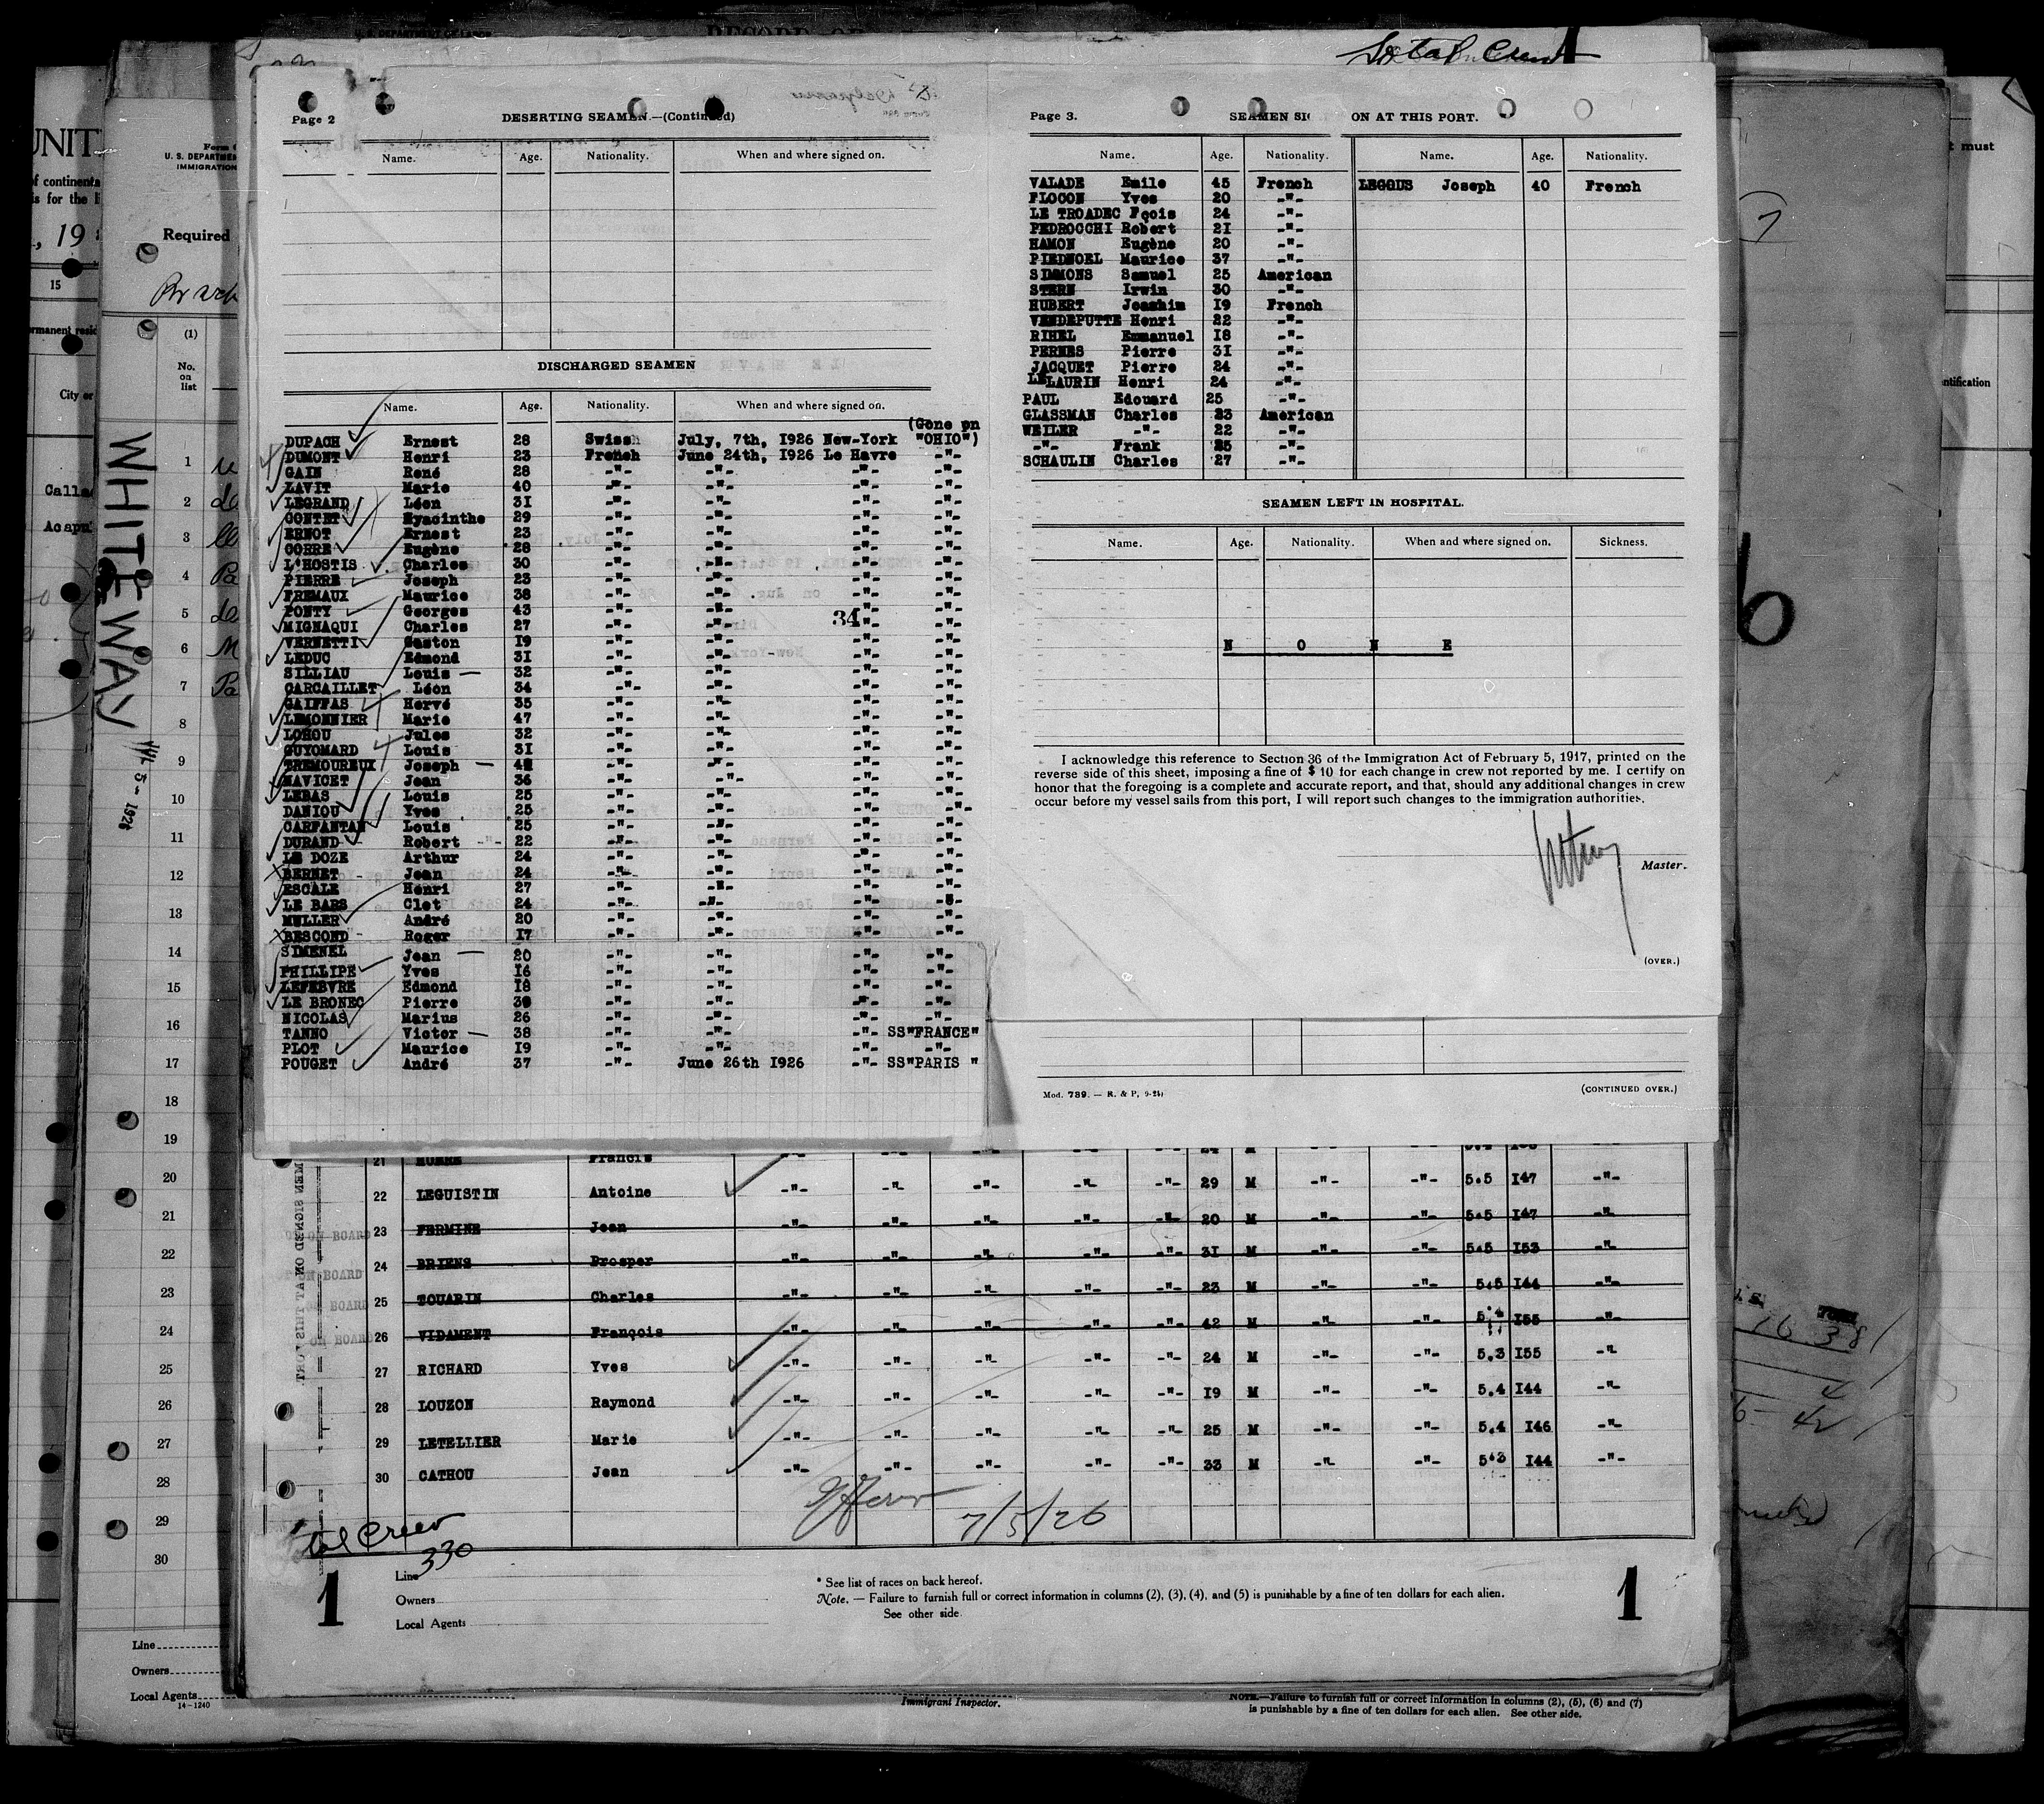 Total Crew
Page 2
DESERTING SEAMEN.—(Continued)
Name. Age. Nationality. When and where signed on.
DISCHARGED SEAMEN
Name. Age. Nationality. When and where signed on.
(Gone on
DUPACH Ernest 28 Swiss July, 7th, I926 New-York "OHIO")
DUMONT Henri 23 French June 24th, I926 Le Havre -"-
GAIN René 28 -"- -"- -"- -"-
LAVIT Marie 40 -"- -"- -"- -"-
LEGRAND Léon 3I -"- -"- -"- -"-
CONTET Hyacinthe 29 -"- -"- -"- -"-
ERNOT Ernest 23 -"- -"- -"- -"-
CORRE Eugène 28 -"- -"- -"- -"-
L'HOSTIS Charles 30 -"- -"- -"- -"-
PIERRE Joseph 23 -"- -"- -"- -"-
FREMAUX Maurice 38 -"- -"- -"- -"-
PONTY Georges 43 -"- -"- -"- -"-
34
MIGNAQUI Charles 27 -"- -"- -"- -"-
VERNETTI Gaston I9 -"- -"- -"- -"-
LEDUC Edmond 3I -"- -"- -"- -"-
SILLIAU Louis — 32 -"- -"- -"- -"-
CARCAILLET Léon 34 -"- -"- -"- -"-
GAIFFAS Hervé 35 -"- -"- -"- -"-
LEMONNIER Marie 47 -"- -"- -"- -"-
LOHOU Jules 32 -"- -"- -"- -"-
GUYOMARD Louis 3I -"- -"- -"- -"-
TREMOUREUX Joseph — -"- -"- -"- -"-
NAVICET Jean 36 -"- -"- -"- -"-
LEBAS Louis 25 -"- -"- -"- -"-
DANIOU Yves 25 -"- -"- -"- -"-
CARFANTAN Louis 25 -"- -"- -"- -"-
DURAND Robert -"- 22 -"- -"- -"- -"-
LE DOZE Arthur 24 -"- -"- -"- -"-
BERNET - Jean 24 -"- -"- -"- -"-
ESCALE Henri 27 -"- -"- -"- -"-
LE BARS Clet 24 -"- -"- -"- -"-
MULLER André 20 -"- -"- -"- -"-
BESCOND - Roger I7 -"- -"- -"- -"-
SIMENEL Jean — 20 -"- -"- -"- -"-
PHILLIPE Yves I6 -"- -"- -"- -"-
LEFEBVRE Edmond I8 -"- -"- -"- -"-
LE BRONEC Pierre -"- -"- -"- -"-
NICOLAS Marius 26 -"- -"- -"- -"-
TANNO Victor — 38 -"- -"- -"- SS"FRANCE"
PLOT Maurice I9 -"- -"- -"- -"-
POUGET André 37 -"- June 26th I926 -"- SS"PARIS "
Page 3.
SEAMEN SI ON AT THIS PORT.
Name. Age. Nationality. Name. Age. Nationality.
VALADE Emile 45 French LEGOUS Joseph 40 French
FLOCON Yves 20 -"-
LE TROADEC Fçois 24 -"-
PEDROCCHI Robert 2I -"-
HAMON Eugène 20 -"-
PIEDNOEL Maurice 37 -"-
SIMMONS Samuel 25 American
STERN Irwin 30 -"-
HUBERT Joachim I9 French
VENDEPUTTE Henri 22 -"-
RIHEL Emmanuel I8 -"-
PERNES Pierre 3I -"-
JACQUET Pierre 24 -"-
LE LAURIN Henri 24 -"-
PAUL Edouard 25 -"-
GLASSMAN Charles 23 American
WEILER -"- 22 -"-
-"- Frank 25 -"-
SCHAULIN Charles 27 -"-
SEAMEN LEFT IN HOSPITAL.
Name. Age. Nationality. When and where signed on. Sickness.
N O N E
I acknowledge this reference to Section 36 of the Immigration Act of February 5, 1917, printed on the
reverse side of this sheet, imposing a fine of $ 10 for each change in crew not reported by me. I certify on
honor that the foregoing is a complete and accurate report, and that, should any additional changes in crew
occur before my vessel sails from this port, I will report such changes to the immigration authorities.
Master.
(OVER.)
Mod. 739. — R. & P, 9-25)
(CONTINUED OVER.)
21 Francis 24 M
22 LEGUISTIN Antoine -"- -"- -"- -"- -"- 29 M -"- -"- 5.5 I47 -"-
23 FERMINE Jean -"- -"- -"- -"- -"- 20 M -"- -"- 5.5 I47 -"-
24 BRIENS Prosper -"- -"- -"- -"- -"- 3I M -"- -"- 5.5 I53 -"-
25 TOUARIN Charles -"- -"- -"- -"- -"- 23 M -"- -"- 5.5 I44 -"-
26 VIDAMENT François -"- -"- -"- -"- -"- 42 M -"- -"- 5.4 I55 -"-
27 RICHARD Yves -"- -"- -"- -"- -"- 24 M -"- -"- 5.3 I55 -"-
28 LOUZON Raymond -"- -"- -"- -"- -"- I9 M -"- -"- 5.4 I44 -"-
29 LETELLIER Marie -"- -"- -"- -"- -"- 25 M -"- -"- 5.4 I46 -"-
30 CATHOU Jean -"- -"- -"- -"- -"- 33 M -"- -"- 5.3 I44 -"-
7/5/26
tal Crew
330
1
Line
Owners
Local Agents
* See list of races on back hereof.
Note. — Failure to furnish full or correct information in columns (2), (3), (4), and (5) is punishable by a fine of ten dollars for each alien.
See other side.
1
Immigrant Inspector.
NOTE.—Failure to furnish full or correct information in columns (2), (5), (6) and (7)
is punishable by a fine of ten dollars for each alien. See other side.
UNIT
of continents
is for the
, 19
15
rmanent resid
City or
Calla
Acapu
Form
U. S. DEPARTMEN
IMMIGRATION
Required
(1)
No.
on
list
WHITE WAY
5 - 1926
1
2
3
4 Pa
5
6
7 Pa
8
9
10
11
12
13
14
15
16
17
18
19
20
21
22
23
24
25
26
27
28
29
30
Line
Owners
Local Agents
14-1240
t must
ntification